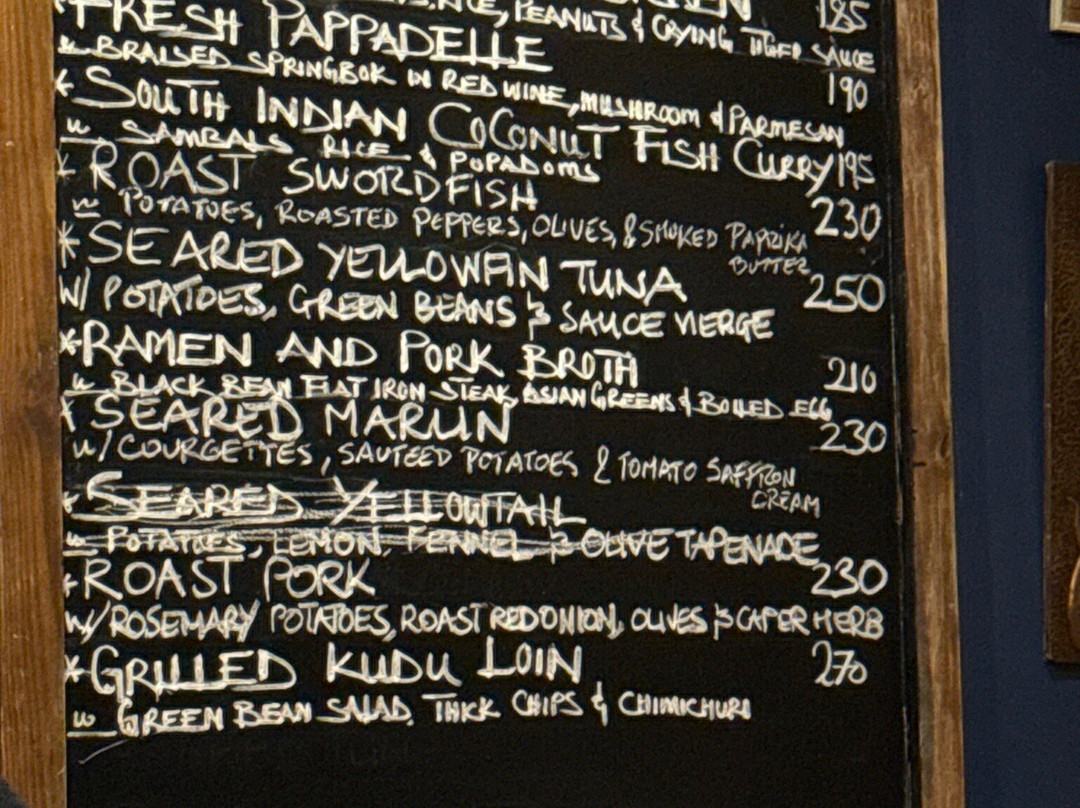 PEANUTS & CRYING TIGER SAUCE 185
* FRESH PAPPADELLE
w BRAISED SPRINGBOK IN RED WINE, MUSHROOM & PARMESAN 190
* SOUTH INDIAN COCONUT FISH CURRY 195
w SAMBALS RICE & POPADOMS
* ROAST SWORDFISH 230
w POTATOES, ROASTED PEPPERS, OLIVES, & SMOKED PAPRIKA
BUTTER
* SEARED YELLOWFIN TUNA 250
W/ POTATOES, GREEN BEANS & SAUCE VIERGE
* RAMEN AND PORK BROTH 210
w BLACK BEAN FLAT IRON STEAK, ASIAN GREENS & BOILED EGG
* SEARED MARLIN 230
w/ COURGETTES, SAUTEED POTATOES & TOMATO SAFFRON
CREAM
* SEARED YELLOWTAIL
w POTATOES, LEMON, FENNEL & OLIVE TAPENADE
* ROAST PORK 230
w/ ROSEMARY POTATOES, ROAST RED ONION, OLIVES & CAPER HERB
* GRILLED KUDU LOIN 270
w GREEN BEAN SALAD, THICK CHIPS & CHIMICHURI